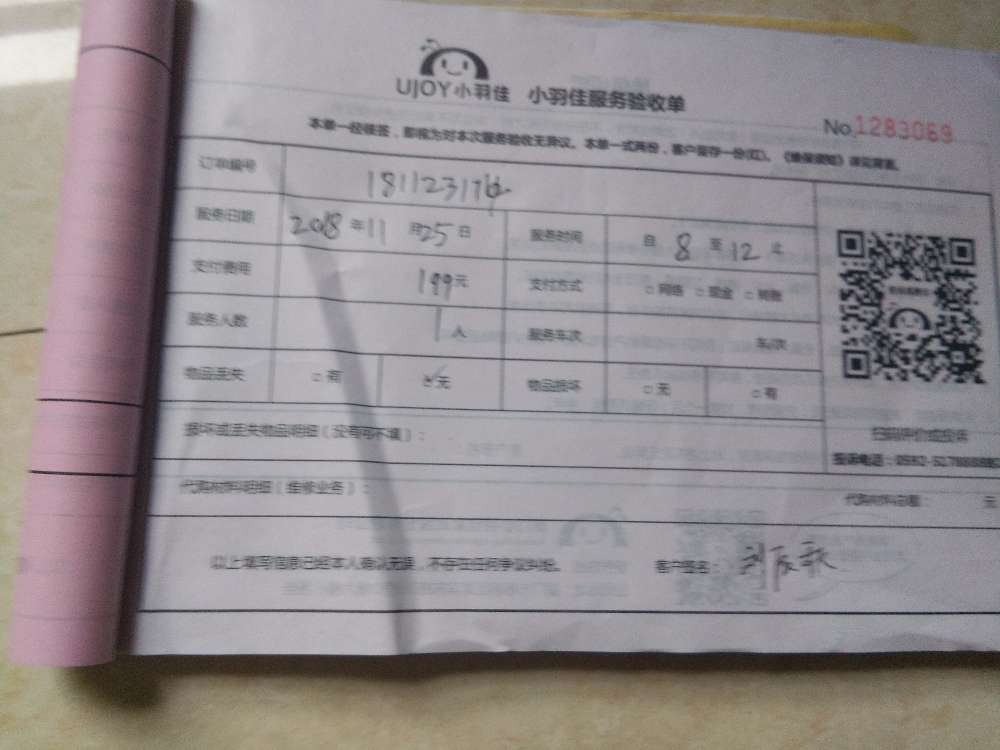 UJOY小羽佳 小羽佳服务验收单
No.1283069
本单一经签签，即视为对本次服务验收无异议。本单一式两份，客户留存一份(红)。《维保须知》详见背面。
订单编号
服务日期 2018年11月25日 服务时间 自8至12止
支付费用 199元 支付方式 □网络 □现金 □转账
服务人数 1人 服务车次 车/次
物品丢失 □有 ☑无 物品损坏 □无 □有
损坏或丢失物品明细（没有可不填）：
扫码评价或投诉
投诉电话：
代购材料明细（维修业务）： 代购材料总额： 元
以上填写信息已经本人确认无误，不存在任何争议纠纷。 客户签名：